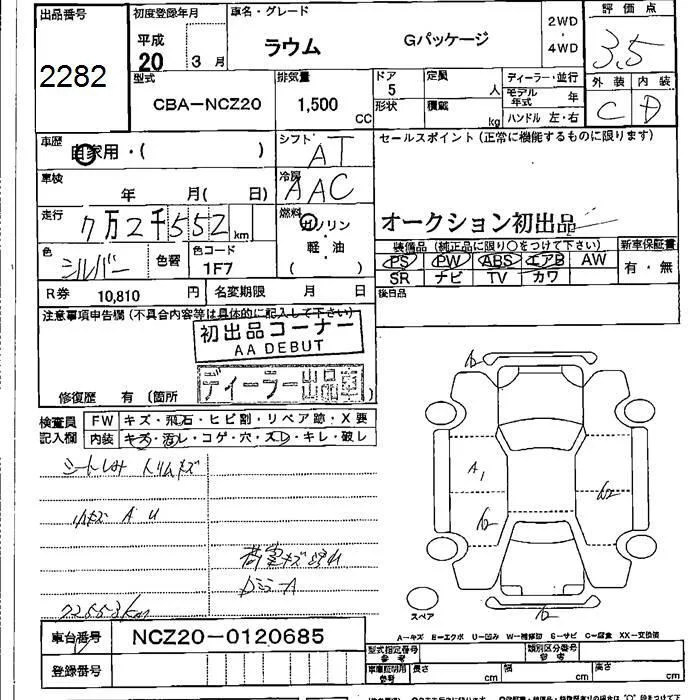 出品番号 初度登録年月 車名・グレード 2WD・4WD 評価点
2282 平成 20 3月 ラウム Gパッケージ 3.5
型式 排気量 ドア 定員 ディーラー・並行 外装 内装
CBA-NCZ20 1,500 CC 5 人 モデル年式 年 C D
形状 積載 kg ハンドル 左・右
車歴 自家用・( ) シフト AT セールスポイント (正常に機能するものに限ります)
車検 年 月( 日) 冷房 AAC
走行 7万2千552km 燃料 ガソリン・軽・油 ( ) オークション初出品
色 シルバー 色替 色コード 1F7 装備品 (純正品に限り○をつけて下さい) 新車保証書
PS PW ABS エアB AW 有・無
SR ナビ TV カワ
R券 10,810 円 名変期限 月 日 後日品
注意事項申告欄 (不具合内容等は具体的に記入して下さい)
初出品コーナー
AA DEBUT
ディーラー出品車
修復歴 有 (箇所 )
検査員記入欄 FW キズ・飛石・ヒビ割・リペア跡・X要
内装 キズ・汚レ・コゲ・穴・スレ・キレ・破レ
シートしみ トリムキズ
小キズ A U
A1
72553km
スペア
車台番号 NCZ20-0120685
A-キズ E-エクボ U-凹み W-補修跡 S-サビ C-腐食 XX-交換済
登録番号
型式指定番号 参考 類別区分番号 参考
車庫証明用 参考 長さ cm 幅 cm 高さ cm